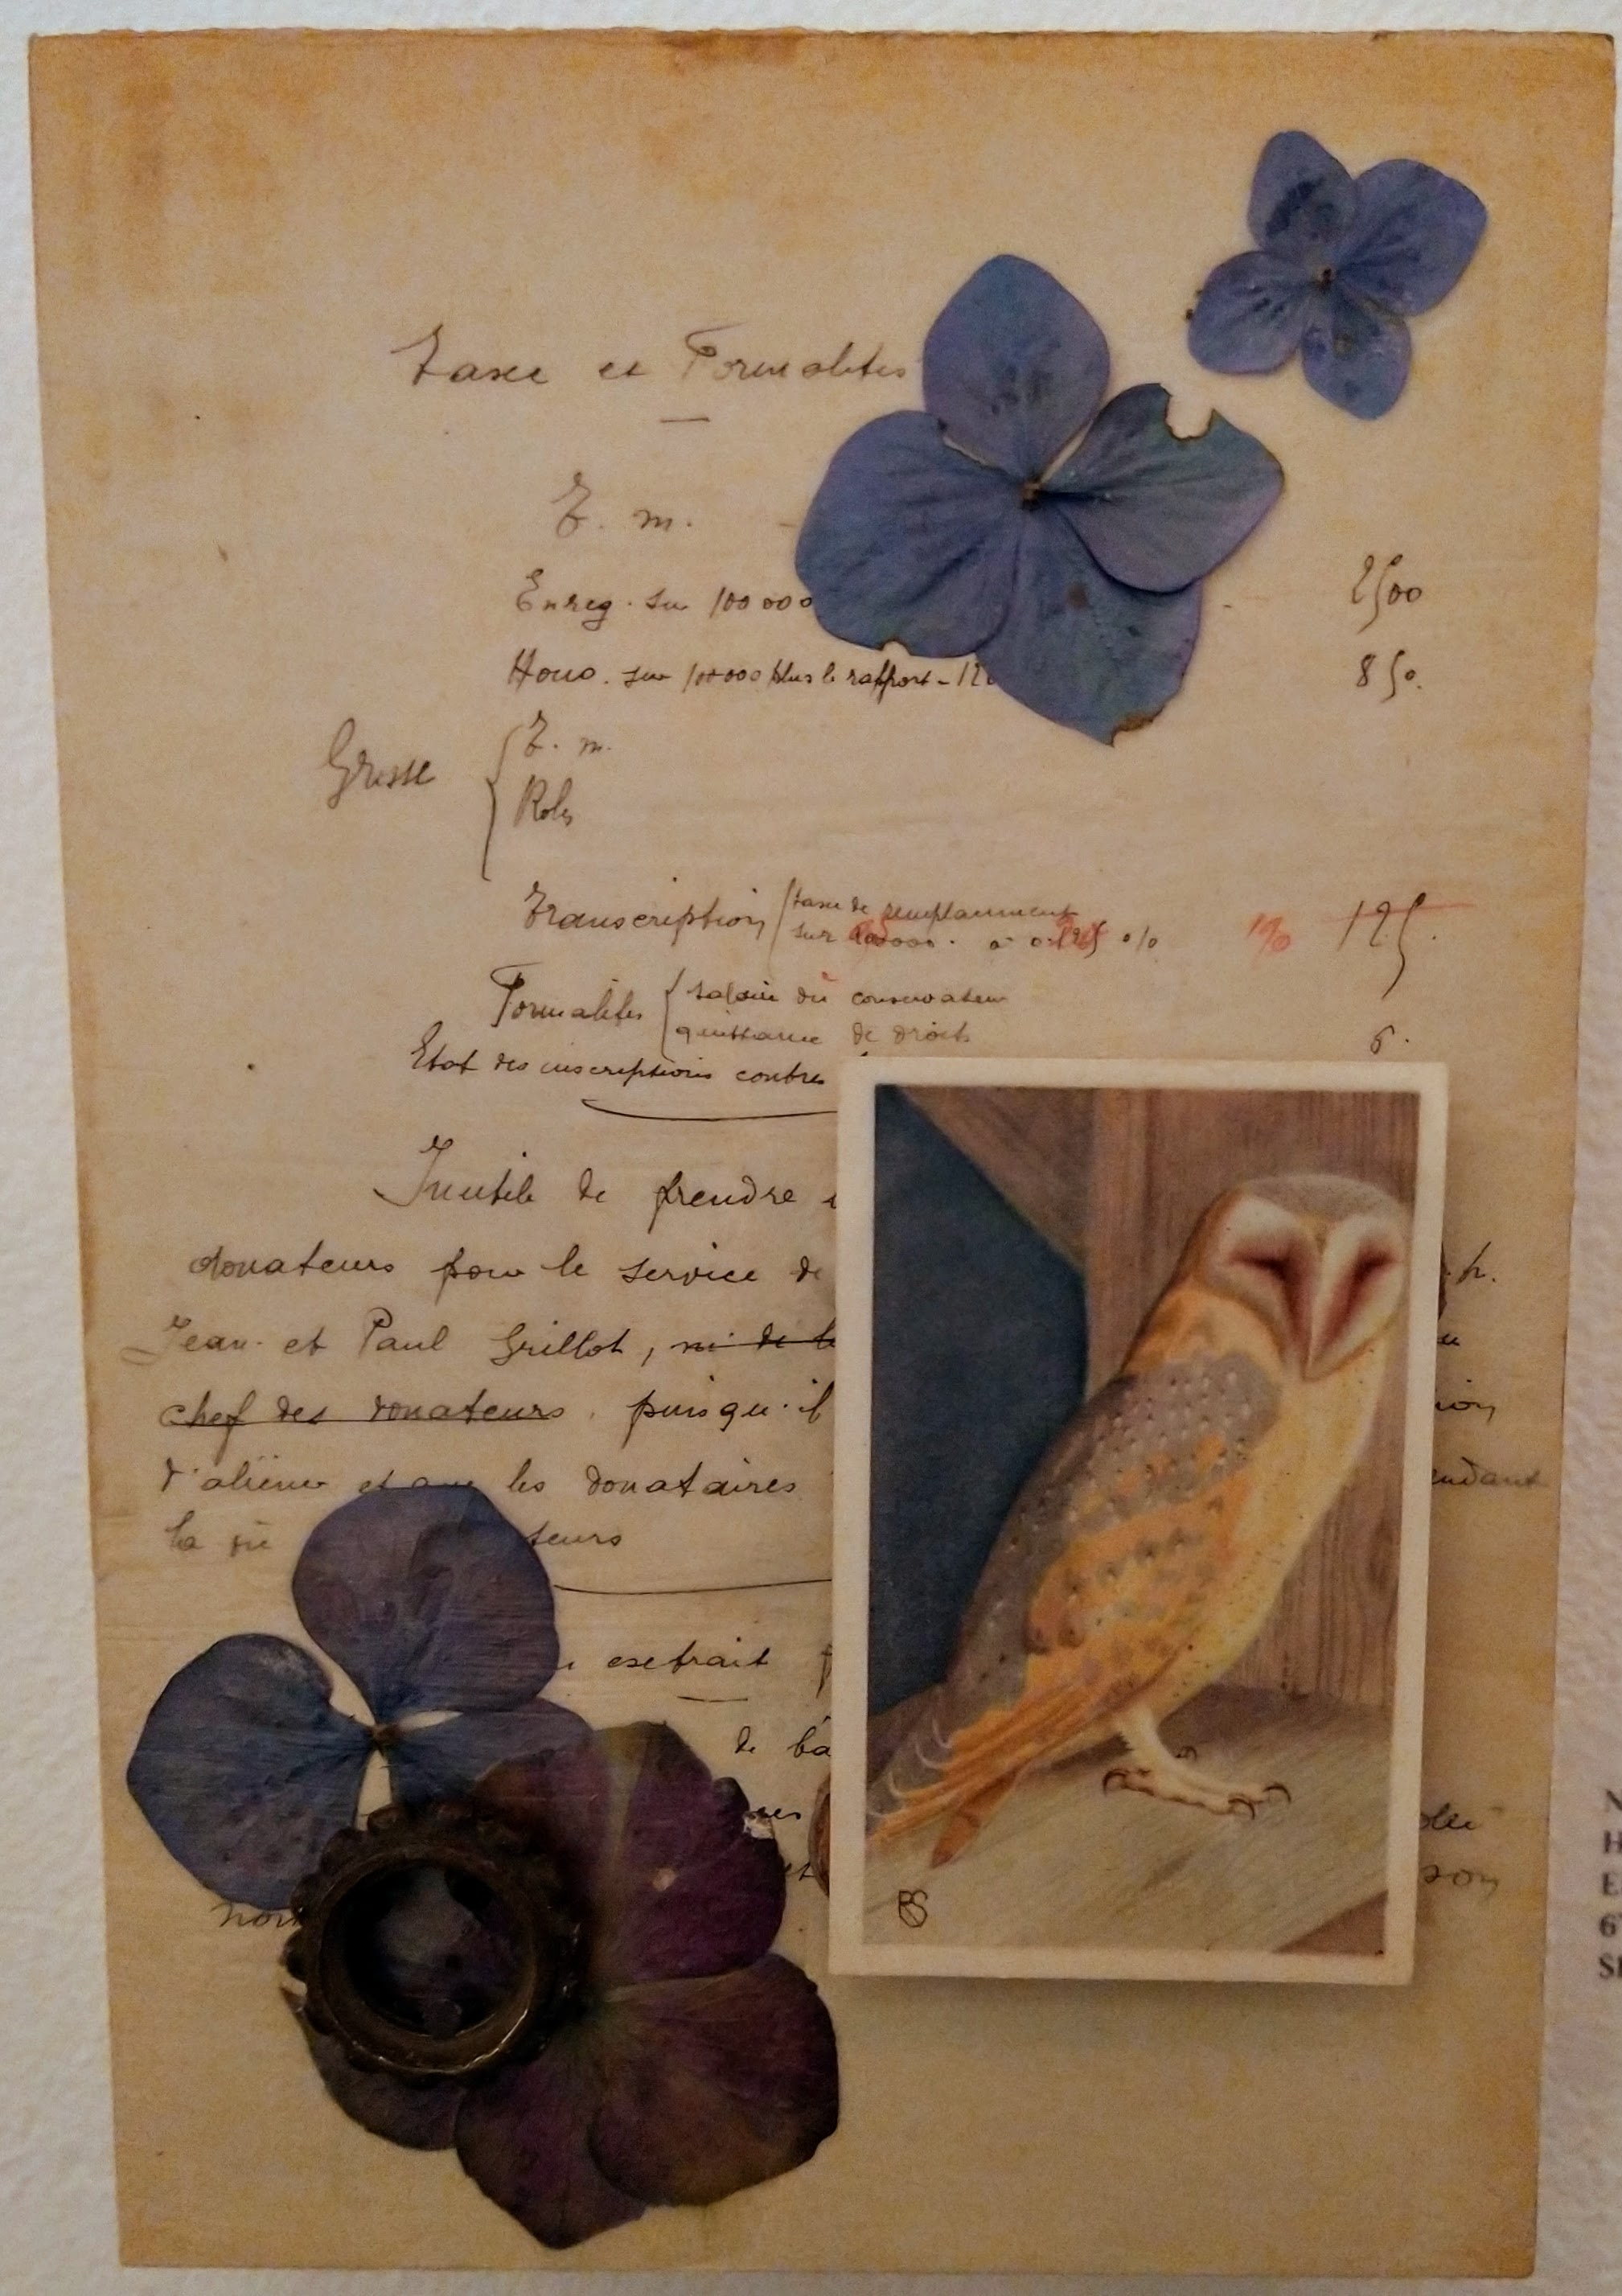 Taxe et Formalités
T. m.
Enreg. sur 100 000
2500
Hono. sur 100 000 plus le rapport - 12
850.
Grosse
T. m.
Roles
Transcription
taxe de remplacement
sur 000. à 0.125 %
125.
Formalités
salaire du conservateur
quittance de droits
6.
Etat des inscriptions contre
Inutile de prendre
donateurs pour le service de
Jean et Paul Grillot, ni de
chef des donateurs. puisqu'il
d'aliéner et que les donataires
endant
la teurs
extrait
de
et
son
BS
N
H
E
67